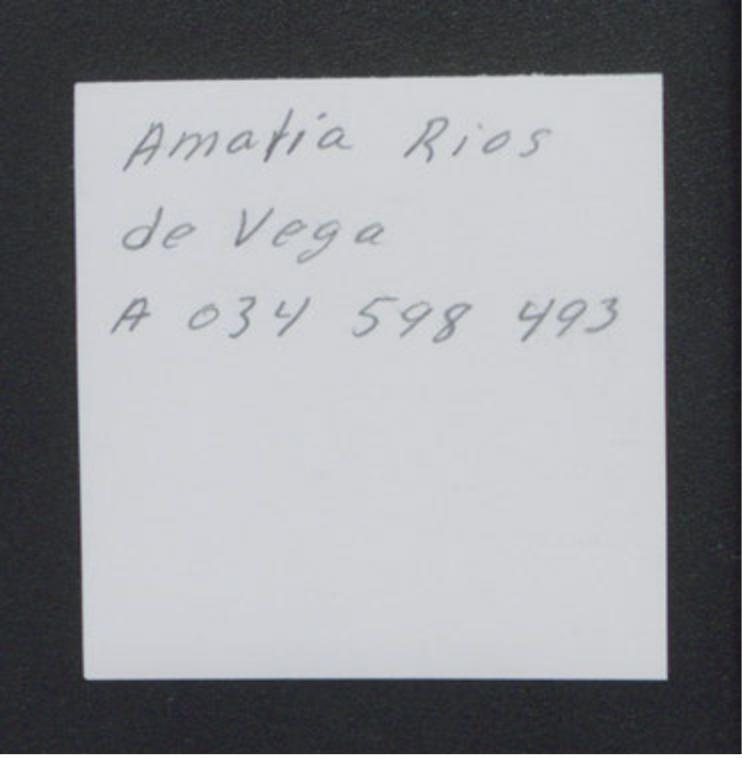 Amatia Rios
de Vega
A 034 598 493